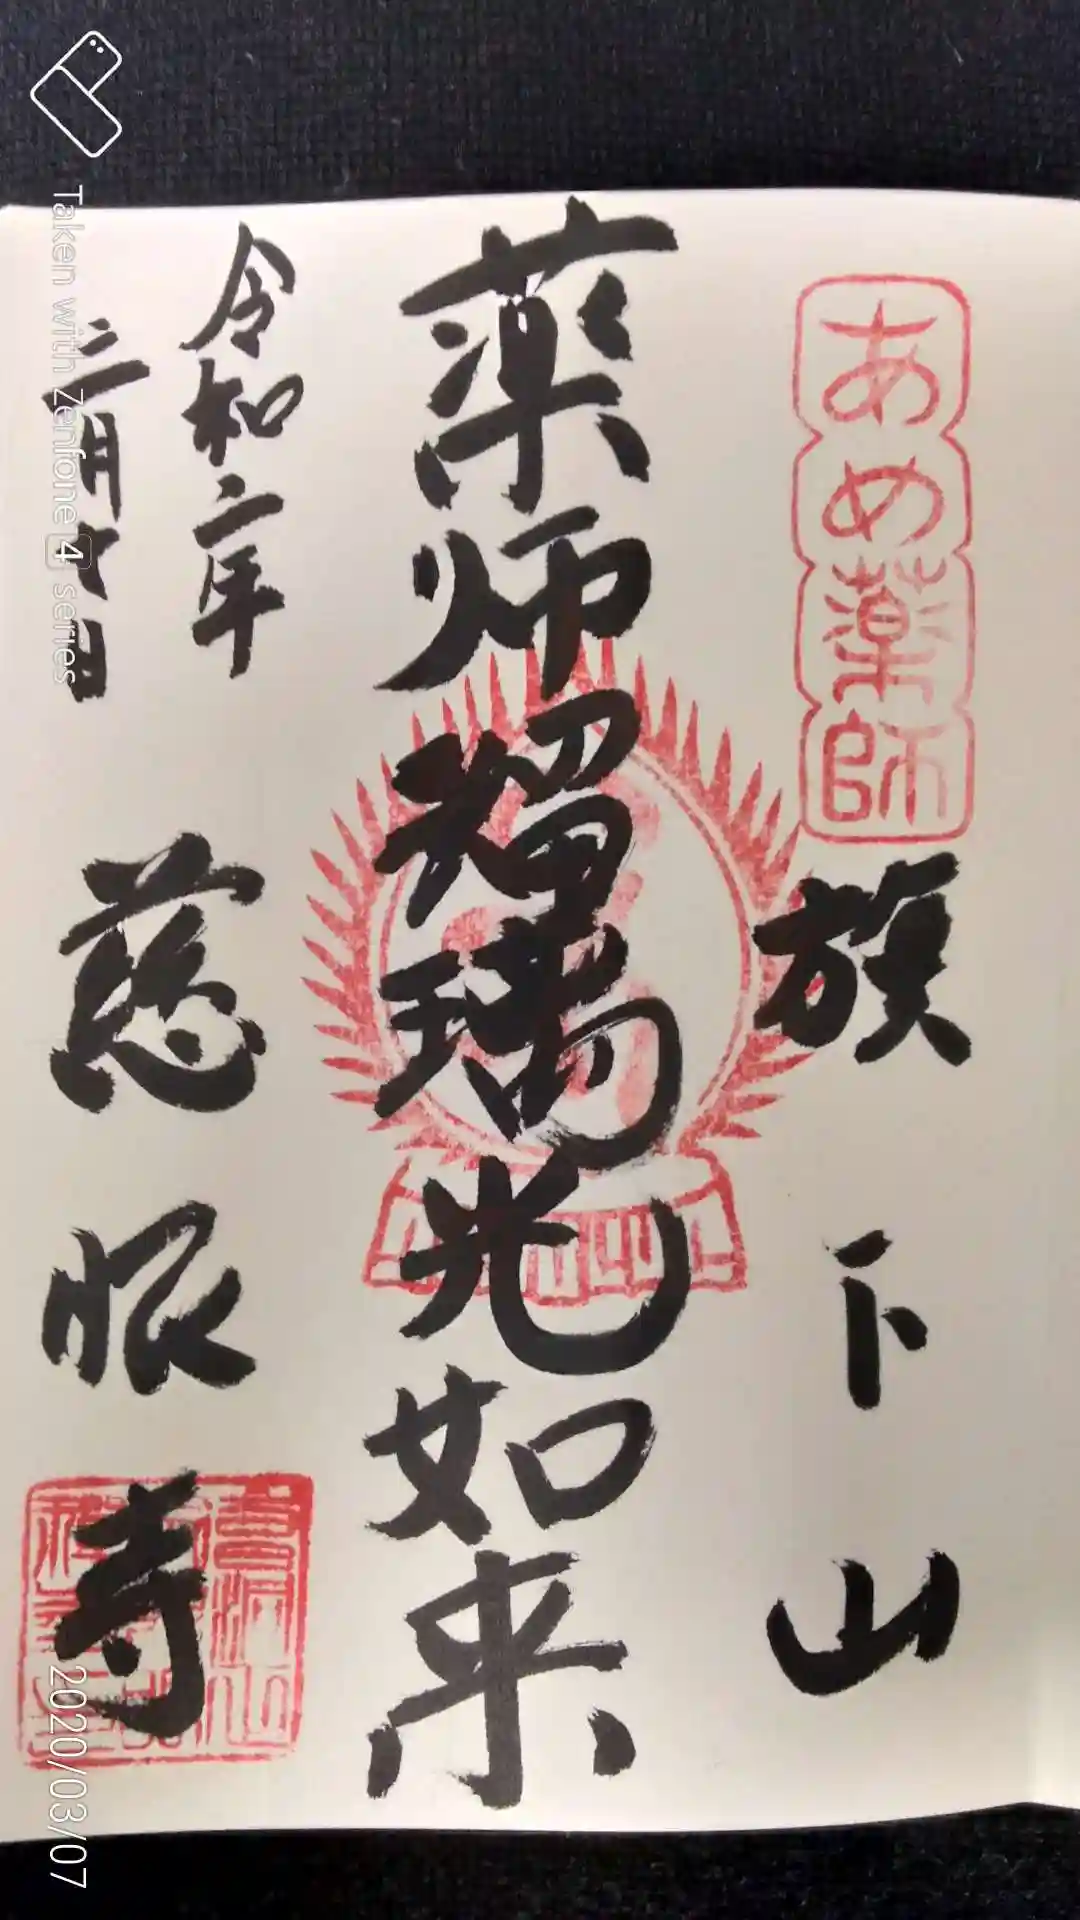 あめ薬師
旗下山
薬師瑠璃光如来
令和二年
三月七日
慈眼寺
Taken with Zenfone 4 series
2020/03/07